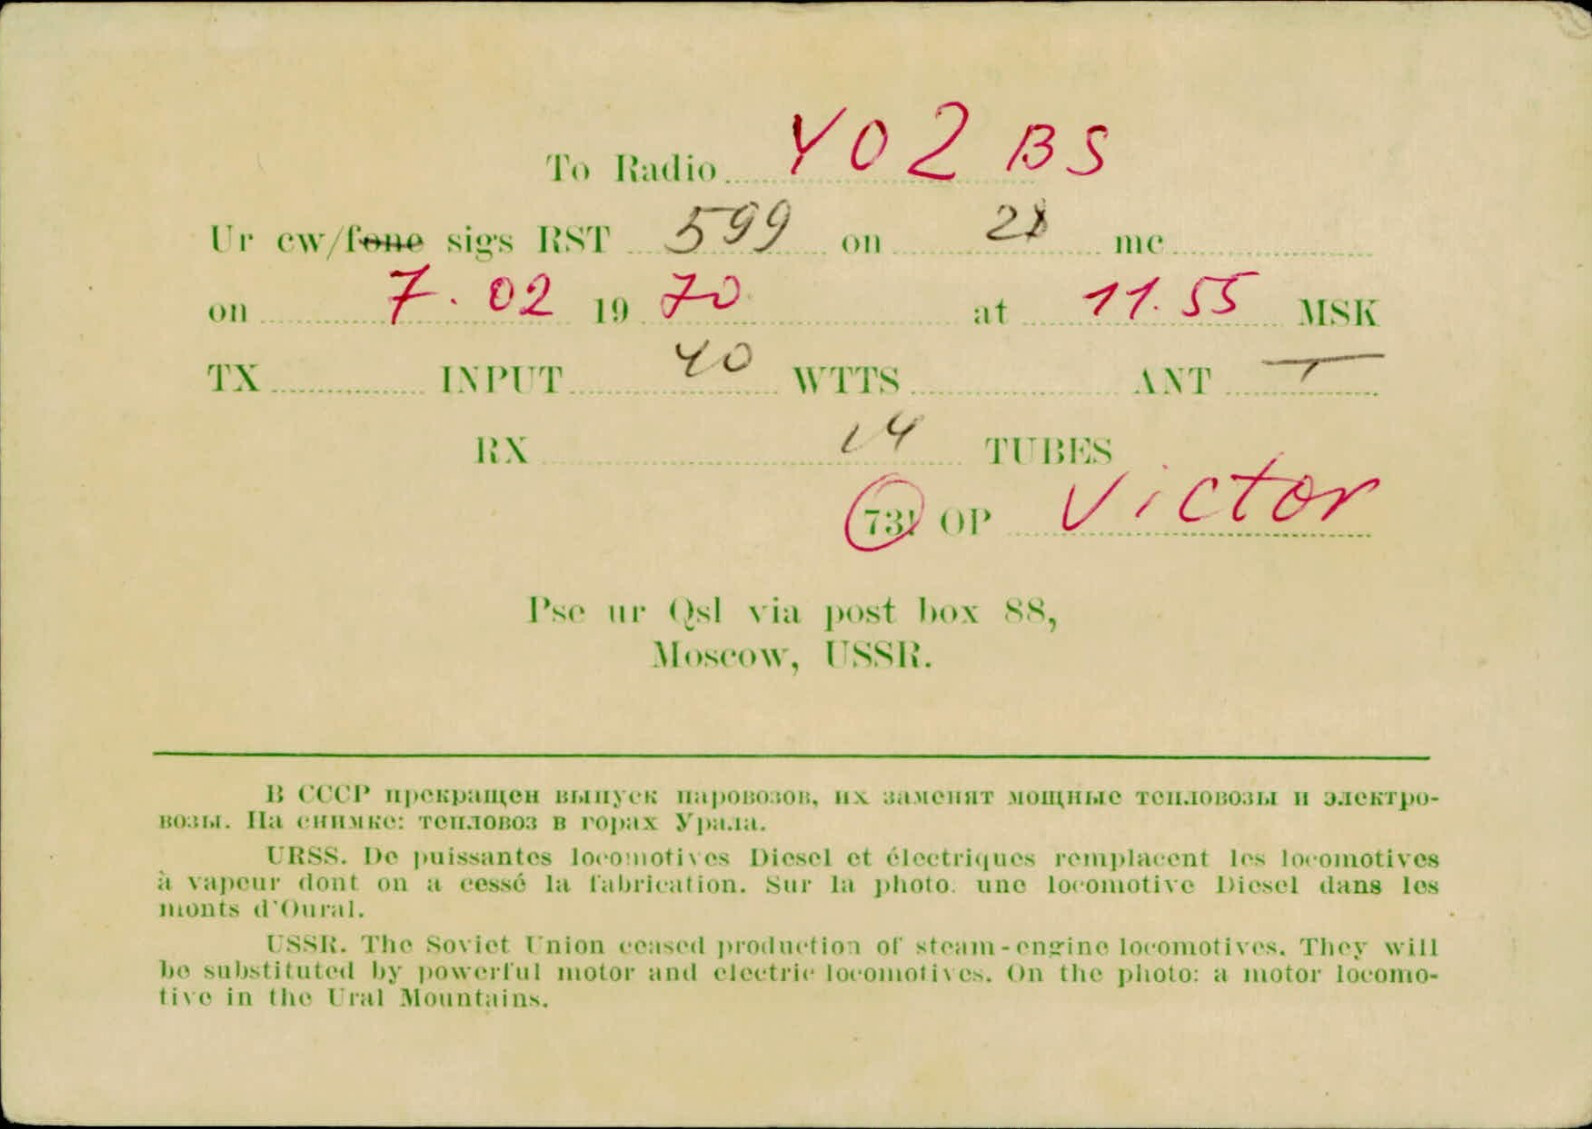 To Radio YO2BS
Ur cw/fone sigs RST 599 on 28 mc
on 7.02 1970 at 11.55 MSK
TX INPUT 40 WTTS ANT T
RX 14 TUBES
73! OP Victor
Pse ur Qsl via post box 88,
Moscow, USSR.
В СССР прекращен выпуск паровозов, их заменят мощные тепловозы и электро-
возы. На снимке: тепловоз в горах Урала.
URSS. De puissantes locomotives Diesel et électriques remplacent les locomotives
à vapeur dont on a cessé la fabrication. Sur la photo: une locomotive Diesel dans les
monts d'Oural.
USSR. The Soviet Union ceased production of steam-engine locomotives. They will
be substituted by powerful motor and electric locomotives. On the photo: a motor locomo-
tive in the Ural Mountains.